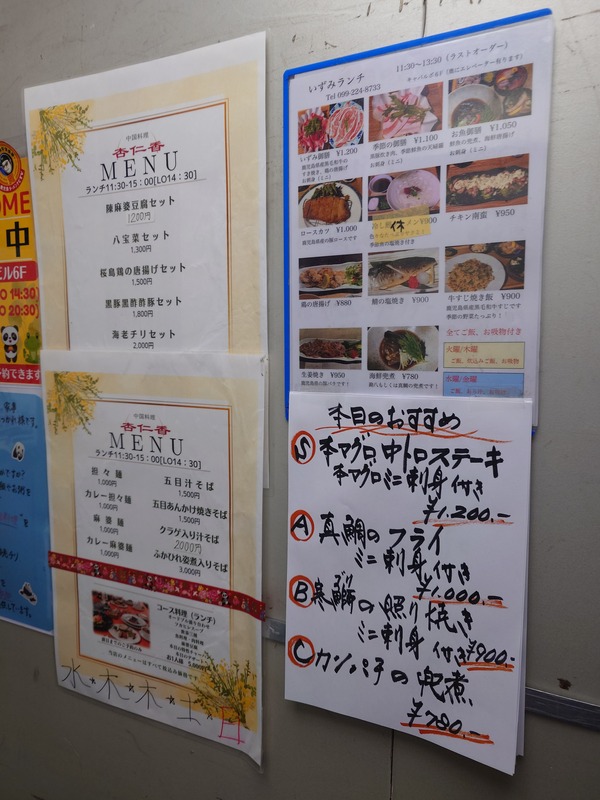 中国料理
杏仁香
MENU
ランチ11:30-15：00[LO14：30]
陳麻婆豆腐セット
1200円
八宝菜セット
1,300円
桜島鶏の唐揚げセット
1,500円
黒豚黒酢酢豚セット
1,800円
海老チリセット
2,000円
中国料理
杏仁香
MENU
ランチ11:30-15：00[LO14：30]
担々麺
1,000円
カレー担々麺
1,000円
麻婆麺
1,000円
カレー麻婆麺
1,000円
五目汁そば
1,500円
五目あんかけ焼きそば
1,500円
クラゲ入り汁そば
2000円
ふかひれ姿煮入りそば
3,000円
コース料理（ランチ）
水・木・木・土・日
いずみランチ
11:30～13:30（ラストオーダー）
Tel 099-224-8733
いずみ御膳 ¥1,200
季節の御膳 ¥1,100
お魚御膳 ¥1,050
ロースカツ ¥1,000
鹿児島県産の豚ロースです
休
¥900
チキン南蛮 ¥950
鶏の唐揚げ ¥880
鯖の塩焼き ¥900
牛すじ焼き飯 ¥900
季節の野菜たっぷり！
生姜焼き ¥950
海鮮兜煮 ¥780
全てご飯、お吸物付き
火曜/木曜
水曜/金曜
本日のおすすめ
Ⓢ本マグロ中トロステーキ
本マグロミニ刺身付き
¥1.200.-
Ⓐ真鯛のフライ
ミニ刺身付き
¥1.000.-
Ⓑ寒鰤の照り焼き
ミニ刺身付き¥900.-
Ⓒカンパチの兜煮
¥780-
OME
中
ビル6F
O 14:30)
O 20:30)
予約できます